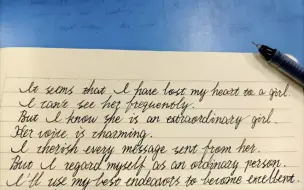 It seems that I have lost my heart to a girl.
I can't see her frequently.
But I know she is an extraordinary girl.
Her voice is charming.
I cherish every message sent from her.
But I regard myself as an ordinary person.
I'll use my best endeavors to become excellent.